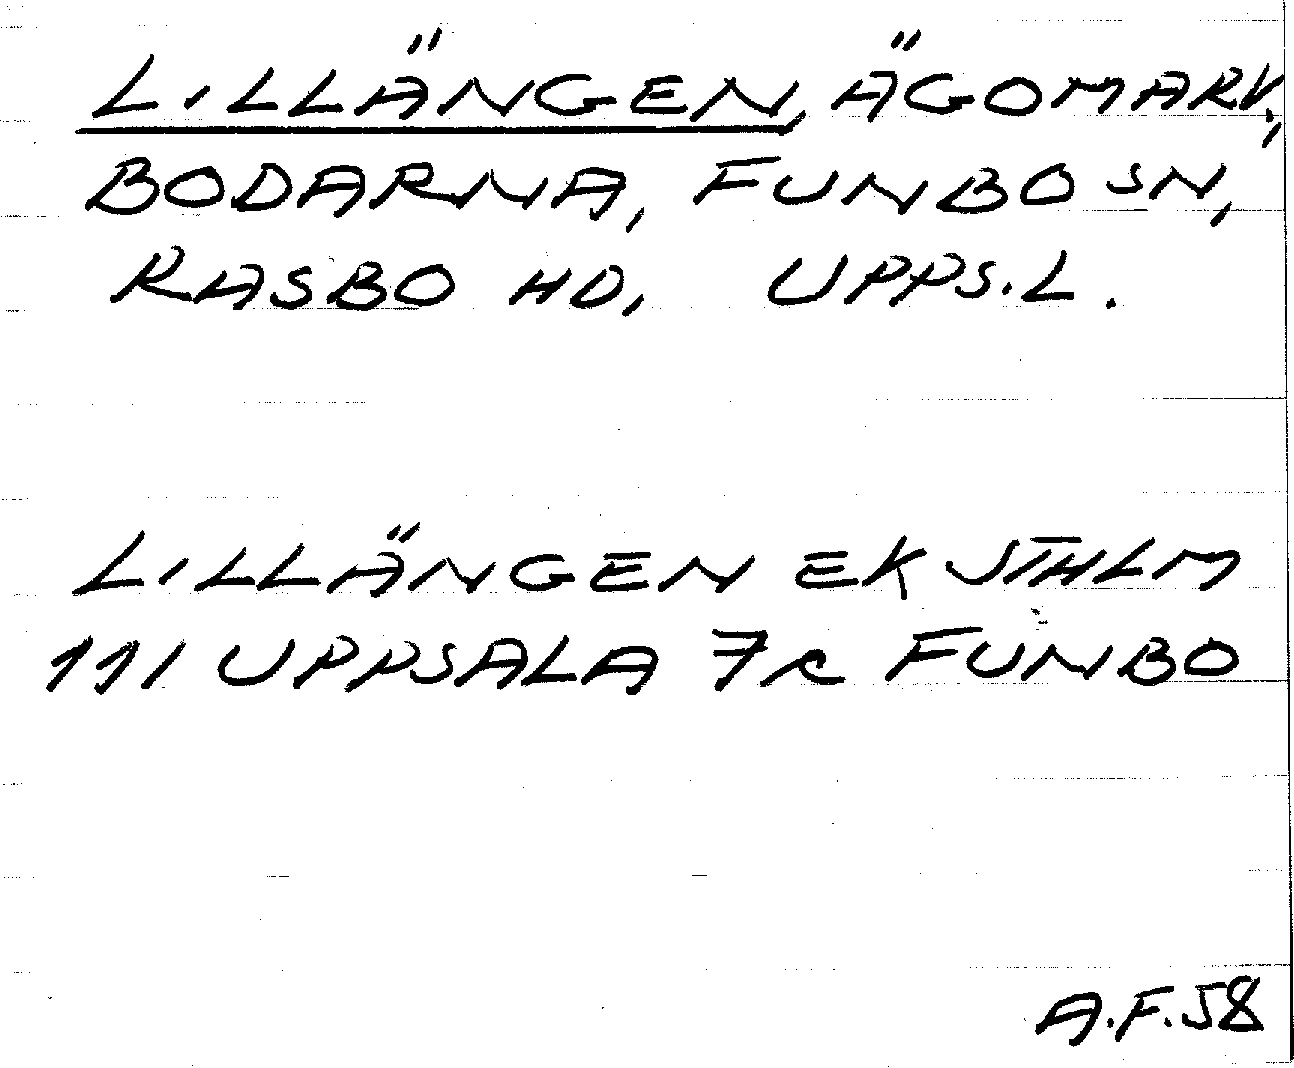 LILLÄNGEN, ÄGOMARK,
BODARNA, FUNBO SN,
RASBO HD, UPPS.L.
LILLÄNGEN EK STHLM
111 UPPSALA 7c FUNBO
A.F.58